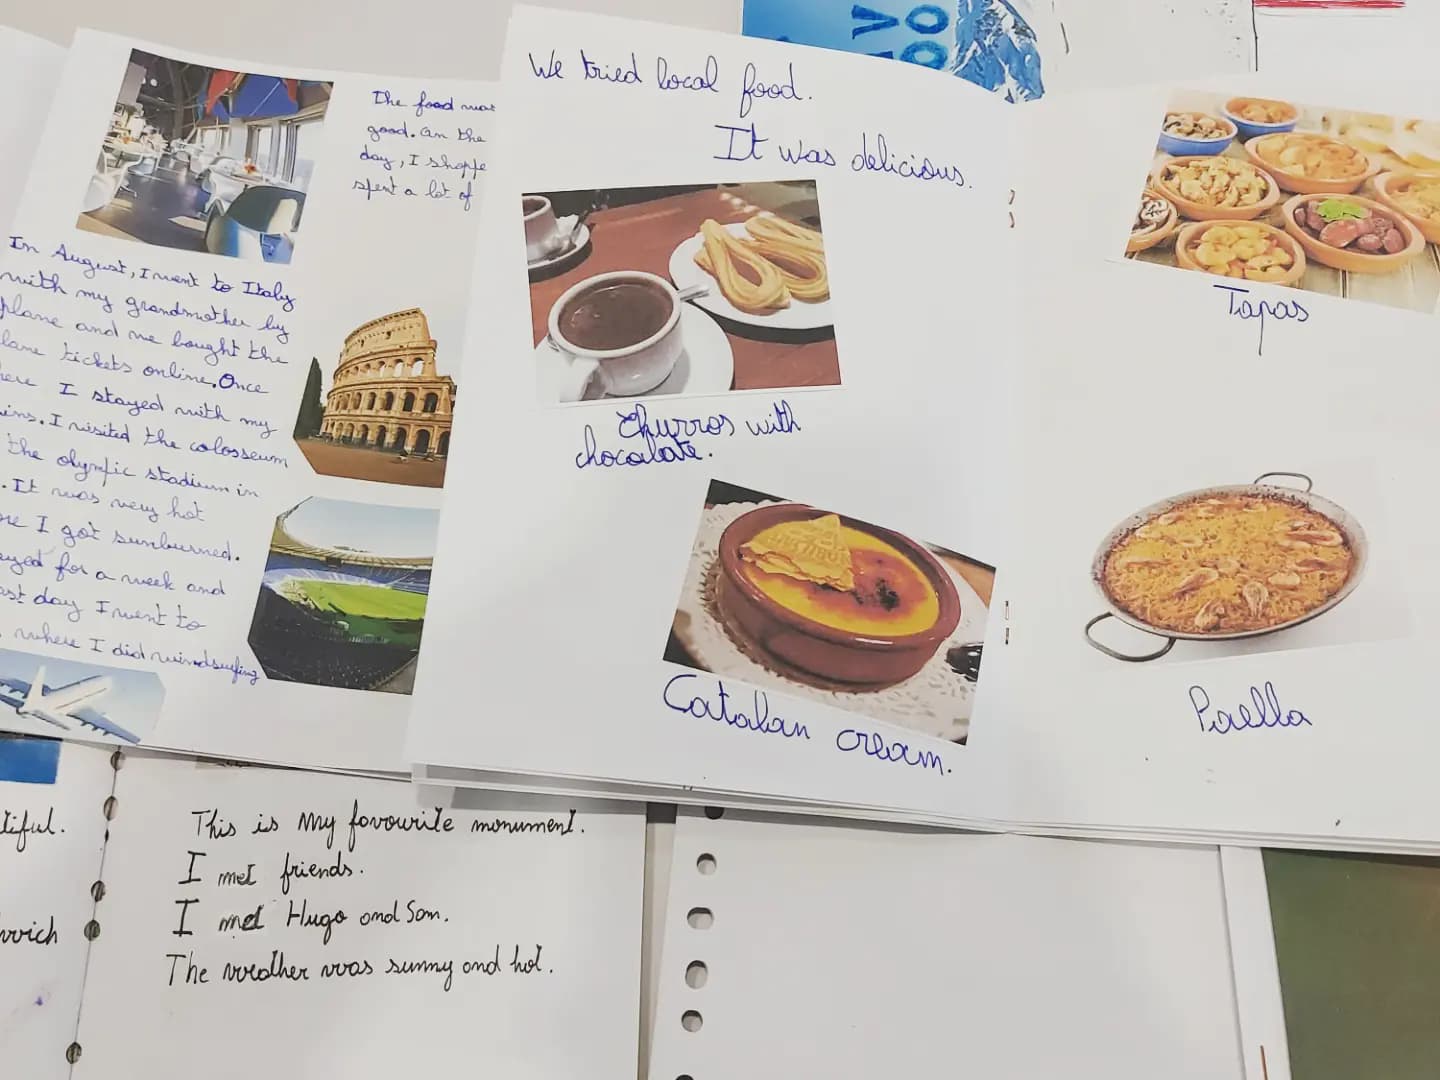 The food was
good. On the
day, I shoppe
spent a lot of
In August, I went to Italy
with my grandmother by
plane and we bought the
lane tickets online. Once
here I stayed with my
ins. I visited the colosseum
the olympic stadium in
. It was very hot
ore I got sunburned.
ayed for a week and
ast day I went to
, where I did windsurfing
We tried local food.
It was delicious.
Churros with
chocolate.
Catalan cream.
Tapas
Paella
tiful.
wich
This is my favourite monument.
I met friends.
I met Hugo and Sam.
The weather was sunny and hot.